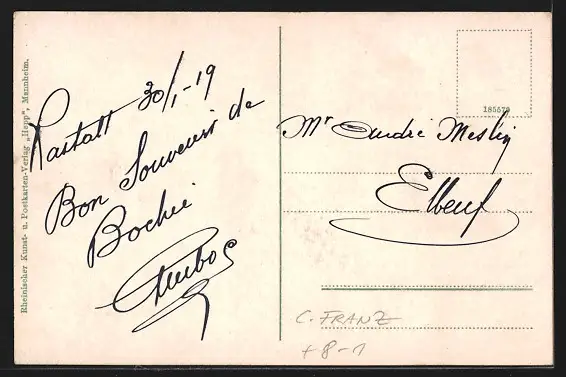 Rastatt 30/1-19
Bon Souvenir de
Bochie
Rheinischer Kunst- u. Postkarten-Verlag „Hepp“, Mannheim.
185570
Mr André Meslin
Elbeuf
C. FRANZ
+8-1